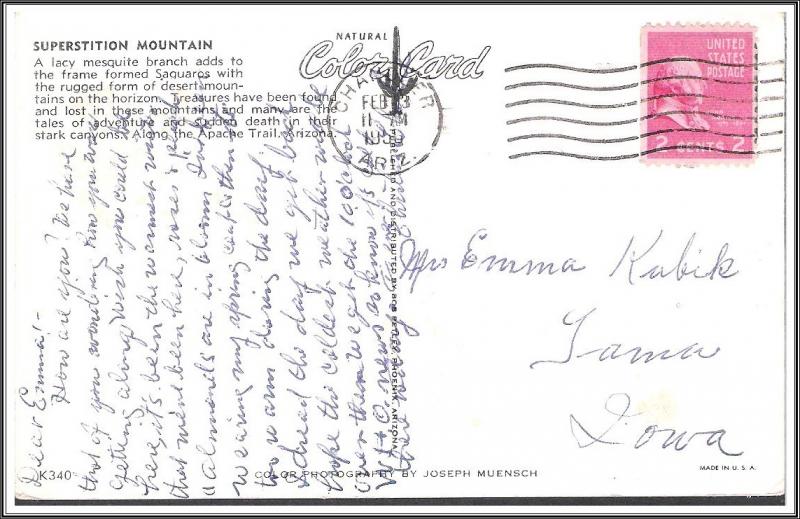 SUPERSTITION MOUNTAIN
A lacy mesquite branch adds to
the frame formed Saguaros with
the rugged form of desert moun-
tains on the horizon. Treasures have been found
and lost in these mountains and many are the
tales of adventure and sudden death in their
stark canyons. Along the Apache Trail, Arizona.
NATURAL
Color Card
FEB
ARIZ.
UNITED
STATES
POSTAGE
2 CENTS 2
Dear Emma:-
How are you? We have
thot of you wondering how you was
getting along wish you could
here, it's been the warmest winter
that we've been here, roses &
almonds are in bloom I'm
wearing my spring coats
too warm during the day
I dread the day we get back
hope the coldest weather
over then we get the
news so know
Mrs Emma Kubik
Tama
Iowa
PUBLISHED AND DISTRIBUTED BY BOB PETLEY, PHOENIX, ARIZONA
K340
COLOR PHOTOGRAPHY BY JOSEPH MUENSCH
MADE IN U. S. A.